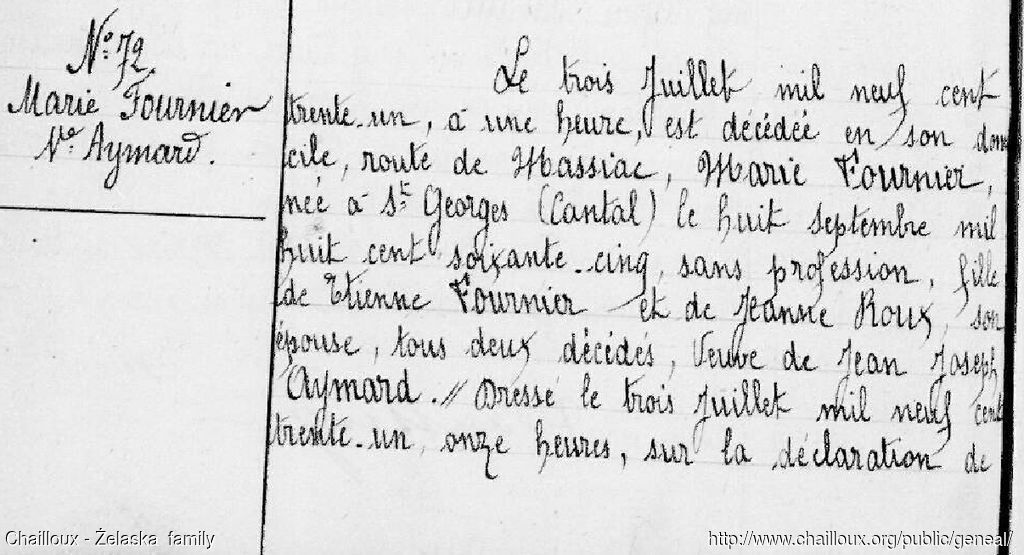 N° 72.
Marie Fournier
Vve Aymard.
Le trois Juillet mil neuf cent
trente-un, à une heure, est décédée en son domi
cile, route de Massiac, Marie Fournier,
née à St Georges (Cantal) le huit septembre mil
huit cent soixante-cinq, sans profession, fille
de Etienne Fournier et de Jeanne Roux, son
épouse, tous deux décédés, Veuve de Jean Joseph
Aymard. // Dressé le trois Juillet mil neuf cent
trente-un, onze heures, sur la déclaration de
Chailloux - Żelaska family
http://www.chailloux.org/public/geneal/